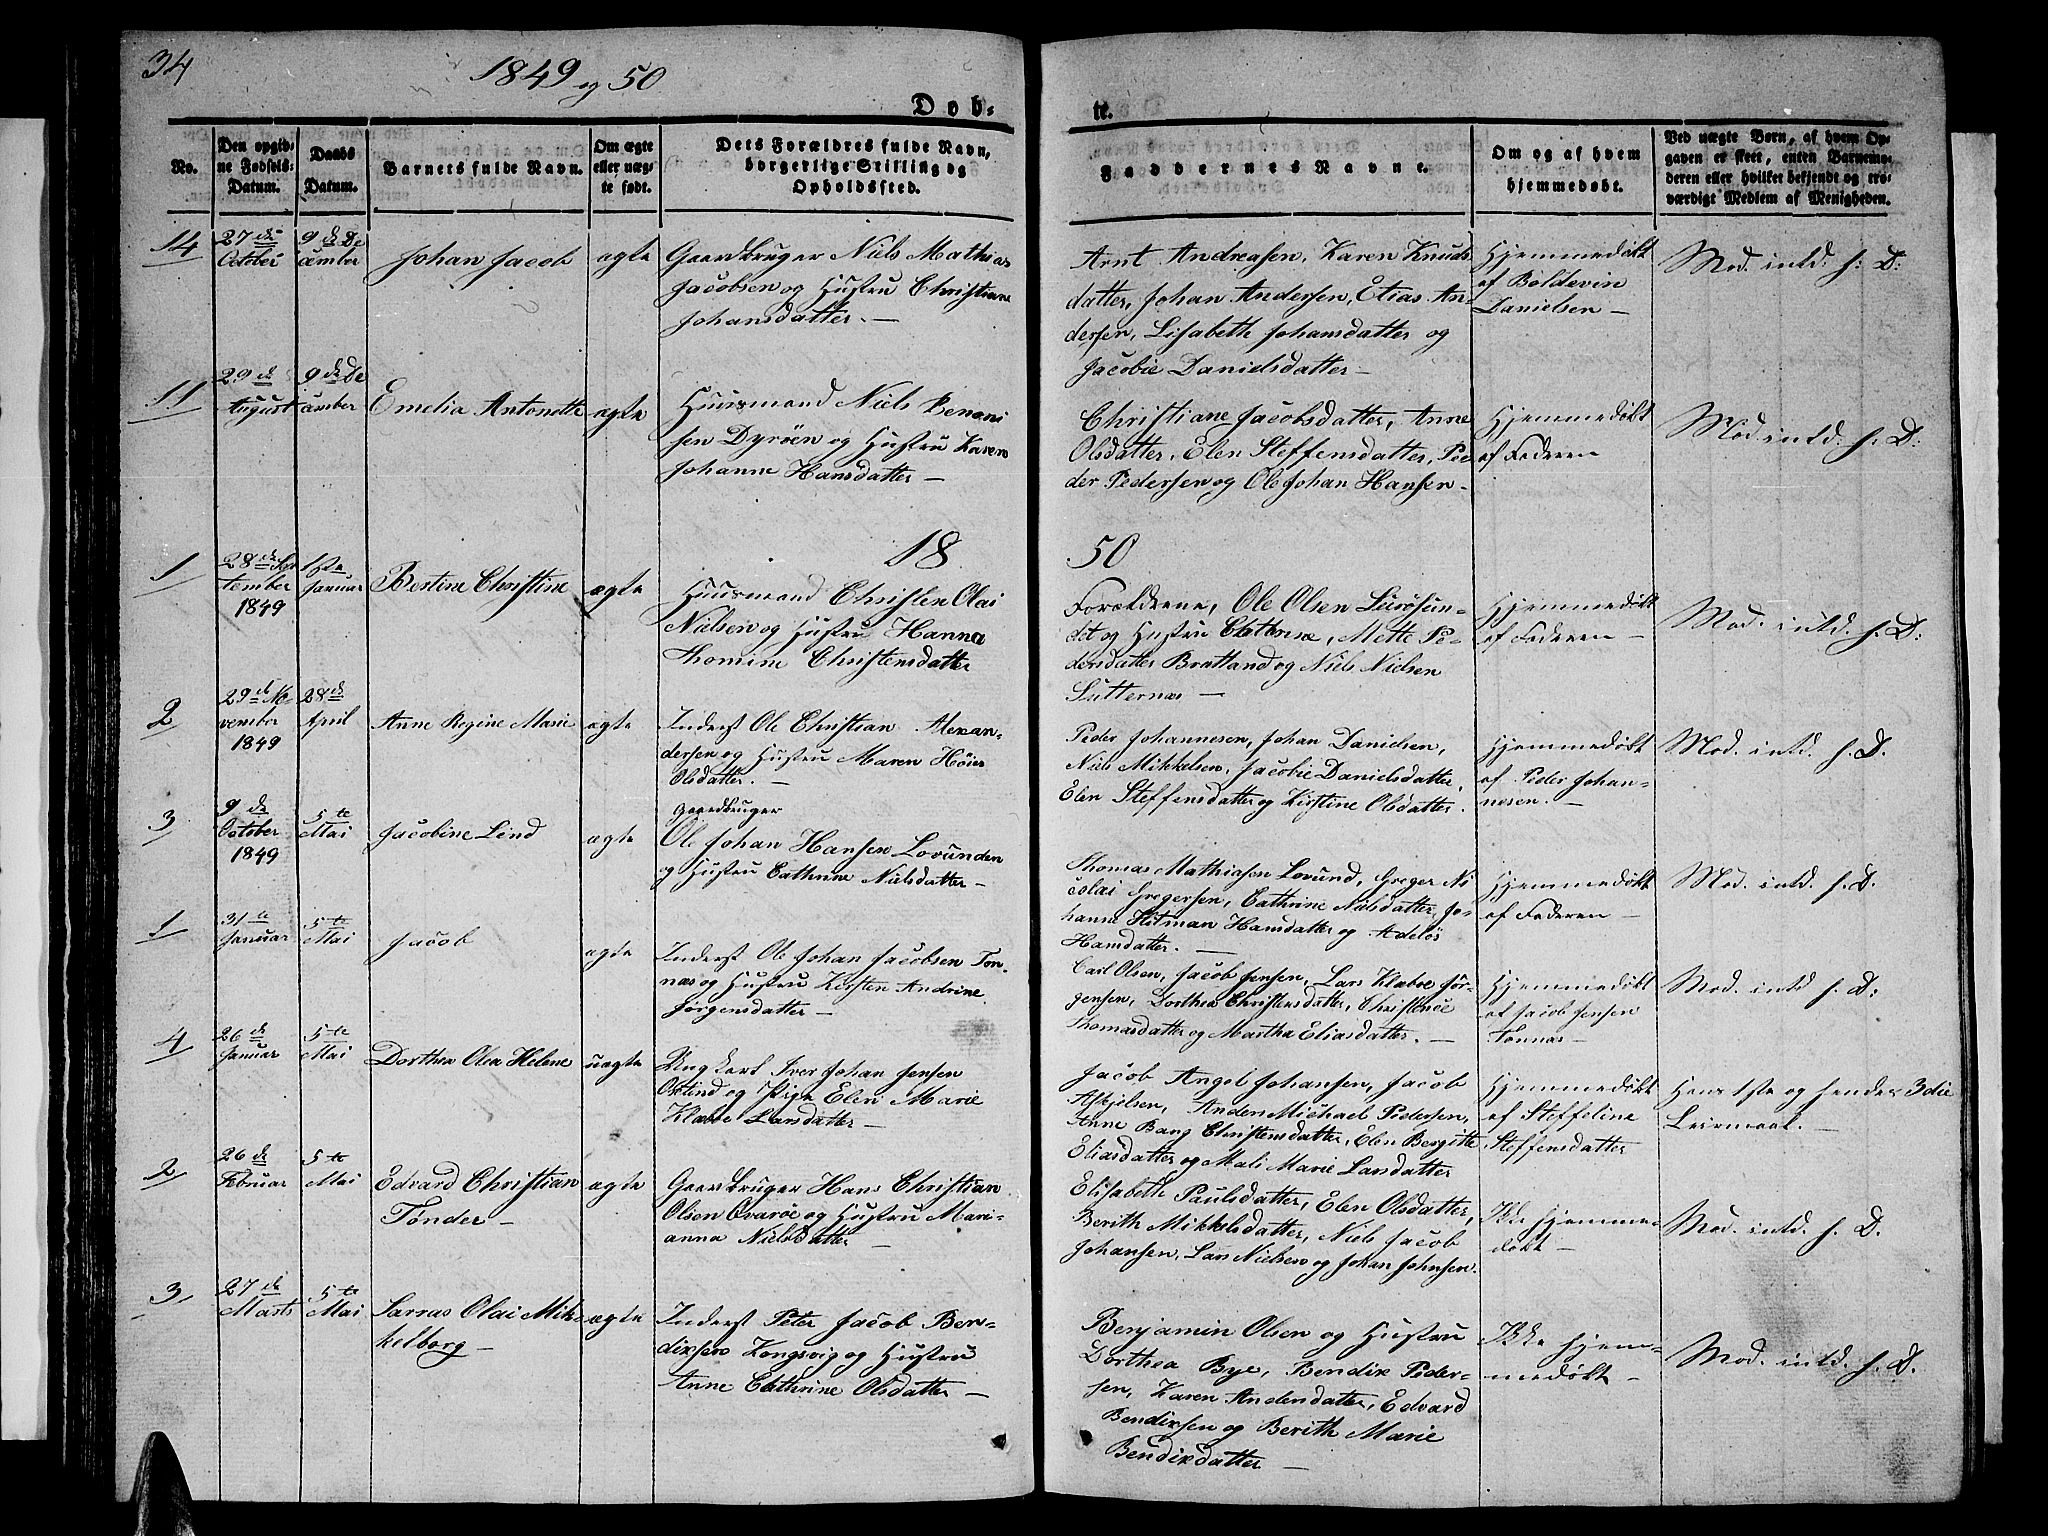 34
1849 og 50
Døb-
te.
No.
Den opgiv-
ne Fødsels-
Datum.
Daabs
Datum.
Barnets fulde Navn.
Om ægte
eller uæg-
te født.
Dets Forældres fulde Navn,
borgerlige Stilling og
Opholdssted.
Faddernes Navne.
Om og af hvem
hjemmedøbt.
Ved uægte Børn, af hvem Op-
gaven er skeet, enten Barnemo-
deren eller hvilket bekjendt og tro-
værdigt Medlem af Menigheden.
14
27de
October
9de De
cember
Johan Jacob
ægte
Gaardbruger Niels Mathias
Jacobsen og Hustru Christiane
Johansdatter. —
Arnt Andreasen, Karen Knuds
datter, Johan Andersen, Elias An-
dersen, Lisabeth Johansdatter og
Jacobie Danielsdatter —
Hjemmedøbt
af Boldevin
Danielsen —
Mod. intd. f: D:
11
29de
August
9de De
cember
Emelia Antonette
ægte
Huusmand Niels Benoni
sen Dyröen og Hustru Karen
Johanne Hansdatter —
Christiane Jacobsdatter, Anne
Olsdatter, Elen Steffensdatter, Pe
der Pedersen og Ole Johan Hansen —
Hjemmedøbt
af Faderen
Mod. intd. f. D:
1850
1
28de Sep
tember
1849
1ste
Januar
Bertine Christine
ægte
Huusmand Christen Olai
Nielsen og Hustru Hanna
Thomine Christensdatter
Forældrene, Ole Olsen Leirösun-
det og Hustru Cathrine, Mette Pe-
dersdatter Bratland og Niels Nielsen
Sutternæs —
Hjemmedøbt
af Faderen —
Mod. intd. f. D:
2
29de No-
vember
1849
28de
April
Anne Regine Marie
ægte
Inderst Ole Christian Alexan-
dersen og Hustru Maren Høier
Olsdatter. —
Peder Johannesen, Johan Danielsen,
Niels Mikkelsen, Jacobie Danielsdatter,
Elen Steffensdatter og Kirstine Olsdatter.
Hjemmedøbt
af Peder Johan-
nesen. —
Mod. intd. f. D.
3
9de
October
1849
5te
Mai
Jacobine Lind
ægte
Gaardbruger
Ole Johan Hansen Lovunden
og Hustru Cathrine Nielsdatter —
Thomas Mathiasen Lovund, Greger Ni
colai Gregersen, Cathrine Nielsdatter, Jo-
hanne Hitman Hansdatter og Adelös
Hansdatter. —
Hjemmedøbt
af Faderen —
Mod. intd. f. D.
1
31te
Januar
5te
Mai
Jacob
ægte
Inderst Ole Johan Jacobsen Ton-
næs og Hustru Kirsten Andrine
Jörgensdatter —
Carl Olsen, Jacob Jensen, Lars Klæboe Jör-
gensen, Dorthea Christensdatter, Christense
Thomasdatter og Martha Eliasdatter. —
Hjemmedøbt
af Jacob Jensen
Tonnæs —
Mod. intd. f. D:
4
26de
Januar
5te
Mai
Dorthea Olea Helene
uægte
Ungkarl Iver Johan Jensen
og Pige Elen Marie
Klæboe Larsdatter —
Jacob Angel Johansen, Jacob
Askjelsen, Anders Michael Pedersen,
Anne Bang Christensdatter, Elen Bergitte
Eliasdatter og Mali Marie Larsdatter
Hjemmedøbt
af Steffeline
Steffensdatter
Hans 1ste og hendes 3die
Leiermaal. —
2
26de
Februar
5te
Mai
Edvard Christian
Tønder —
ægte
Gaardbruger Hans Christian
Olsen Qvaröe og Hustru Mari-
anna Nielsdatter —
Elisabeth Paulsdatter, Elen Olsdatter,
Berith Mikkelsdatter, Niels Jacob
Johansen, Lars Nielsen og Johan Johnsen.
Ikke hjemme-
døbt —
Mod. intd. f. D.
3
27de
Marts
5te
Mai
Sarras Olai Mik-
kelborg —
ægte
Inderst Peter Jacob Ben-
dixsen Kongsvig og Hustru
Anne Cathrine Olsdatter —
Benjamin Olsen og Hustru
Dorthea Bye, Bendix Peder-
sen, Karen Andersdatter, Edvard
Bendixsen og Berith Marie
Bendixdatter —
Ikke hjem-
medøbt —
Mod. intd. f. D.